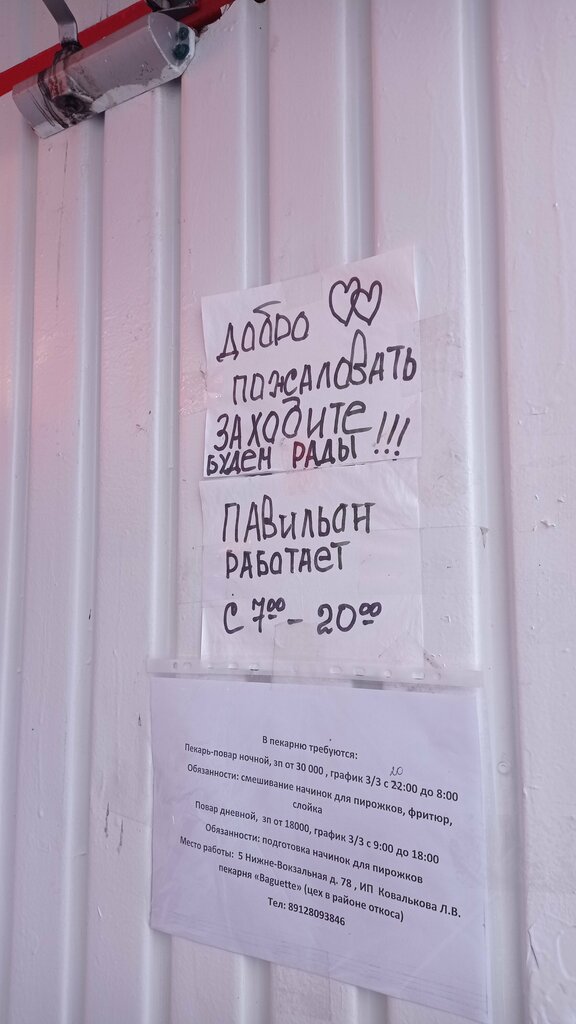 Добро
пожаловать
заходите
буден рады!!!
Павильон
работает
с 7⁰⁰ - 20⁰⁰
В пекарню требуются:
20
Пекарь-повар ночной, зп от 30 000 , график 3/3 с 22:00 до 8:00
Обязанности: смешивание начинок для пирожков, фритюр,
слойка
Повар дневной, зп от 18000, график 3/3 с 9:00 до 18:00
Обязанности: подготовка начинок для пирожков
Место работы: 5 Нижне-Вокзальная д. 78 , ИП Ковалькова Л.В.
пекарня «Baguette» (цех в районе откоса)
Тел: 89128093846